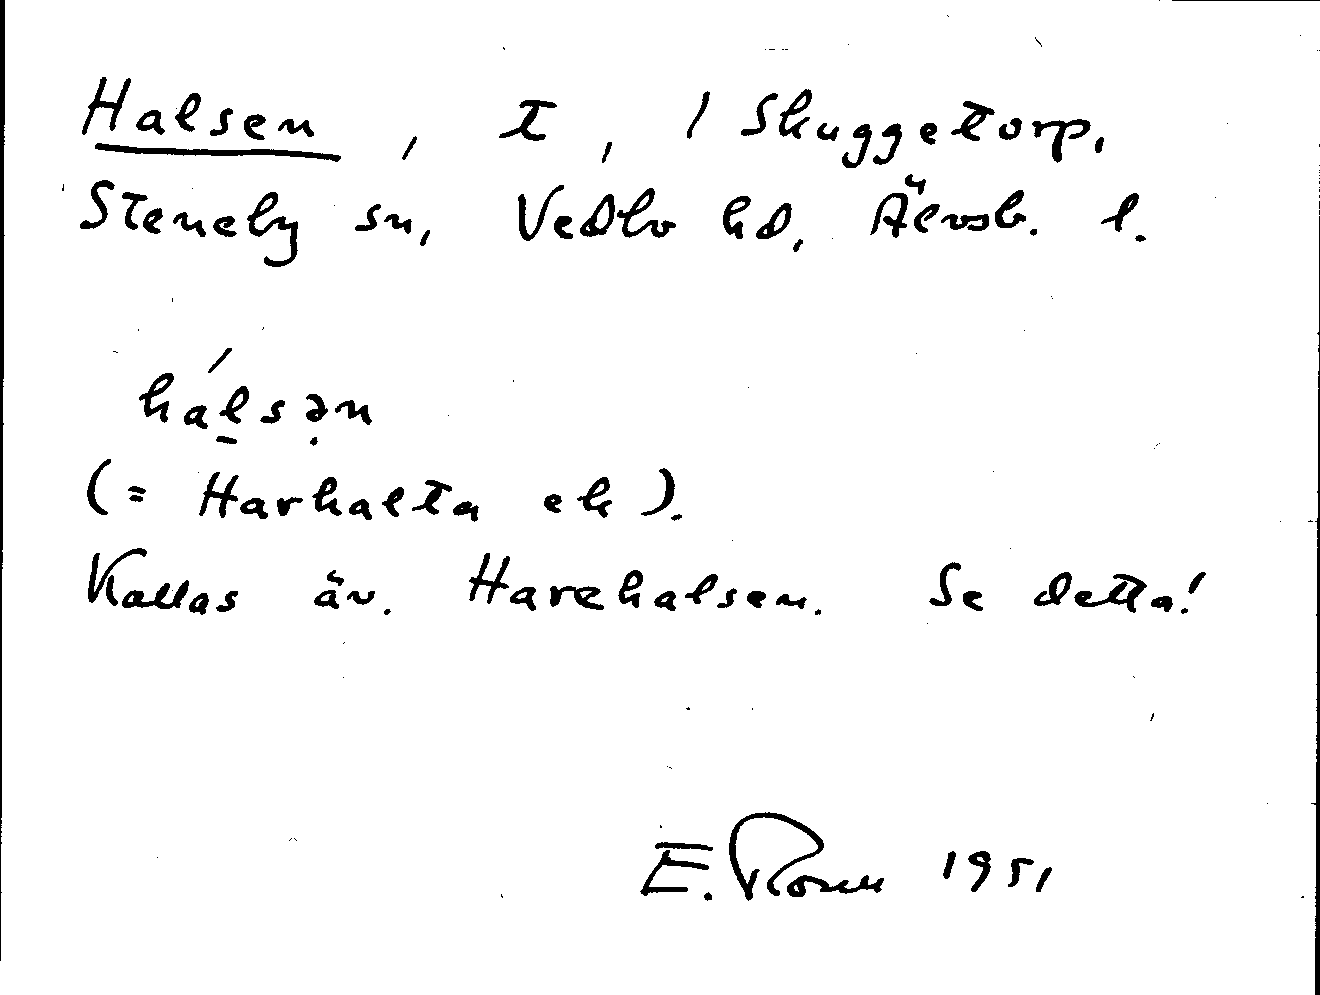 Halsen, t, / Skuggetorp,
Steneby sn, Vedbo hd, Älvsb. l.
hál̠sə̣n
(= Harhalta ek).
Kallas äv. Harehalsen. Se detta!
E. Rosell 1951